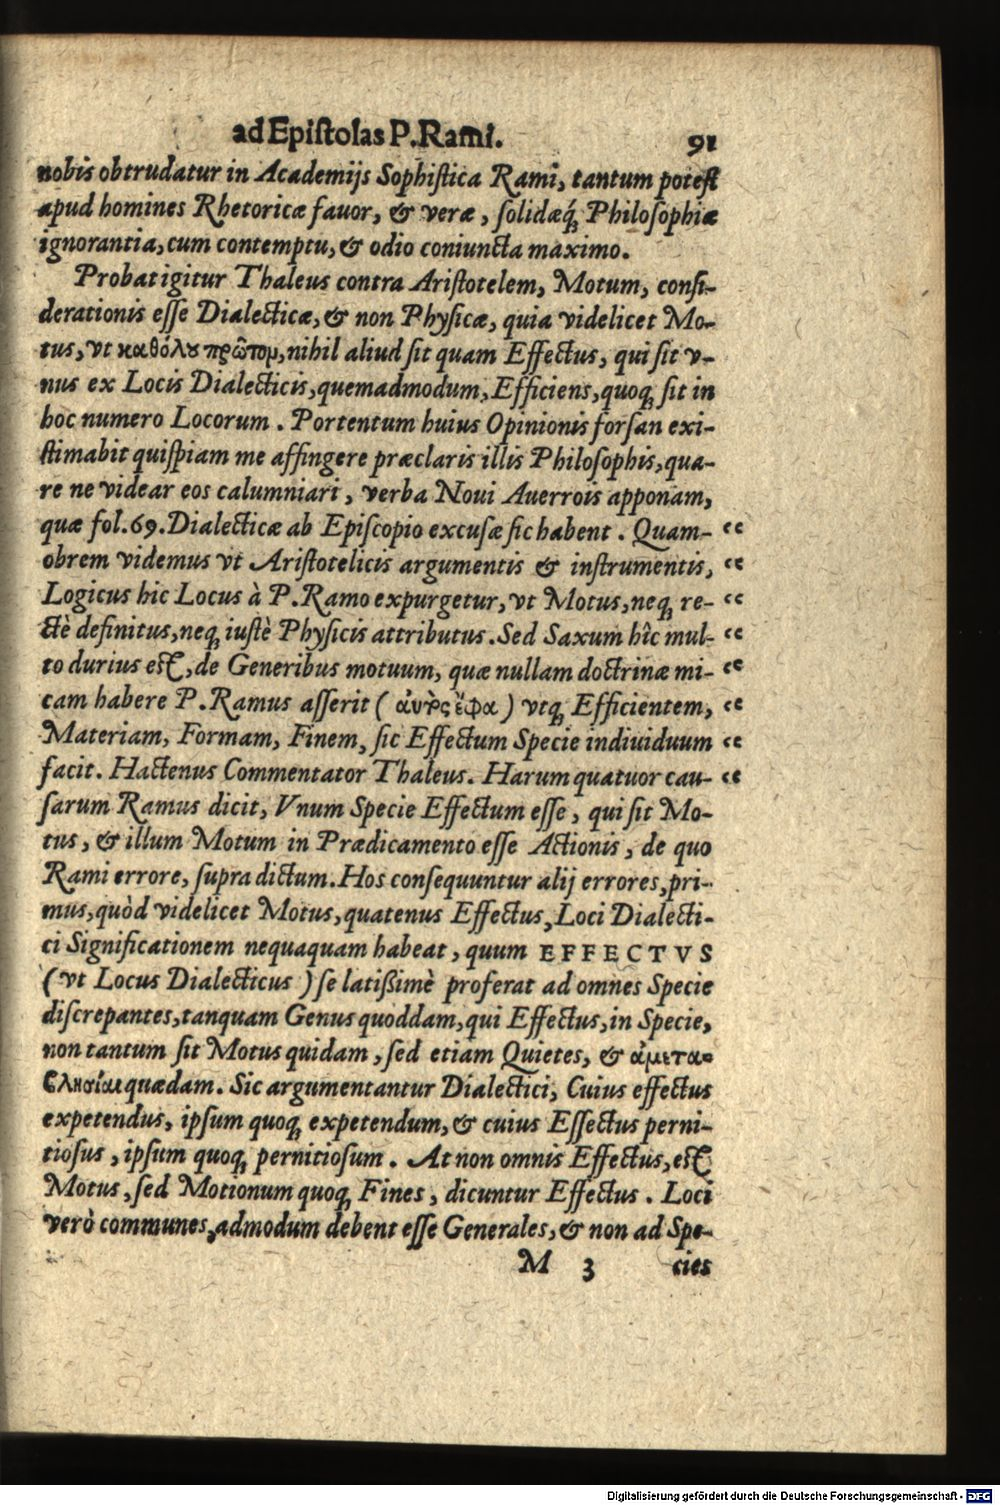 ad Epiſtolas P. Rami. 91
nobis obtrudatur in Academijs Sophiſtica Rami, tantum poteſt
apud homines Rhetoricæ fauor, & veræ, ſolidæq́; Philoſophiæ
ignorantia, cum contemptu, & odio coniuncta maximo.
Probat igitur Thaleus contra Ariſtotelem, Motum, conſi-
derationis eſſe Dialecticæ, & non Phyſicæ, quia videlicet Mo-
tus, vt καθόλου πρῶτομ, nihil aliud ſit quam Effectus, qui ſit v-
nus ex Locis Dialecticis, quemadmodum, Efficiens, quoq; ſit in
hoc numero Locorum. Portentum huius Opinionis forſan exi-
ſtimabit quiſpiam me affingere præclaris illis Philoſophis, qua-
re ne videar eos calumniari, verba Noui Auerrois apponam,
quæ fol. 69. Dialecticæ ab Epiſcopio excuſæ ſic habent. Quam- “
obrem videmus vt Ariſtotelicis argumentis & inſtrumentis, “
Logicus hic Locus à P. Ramo expurgetur, vt Motus, neq; re- “
ctè definitus, neq; iuſtè Phyſicis attributus. Sed Saxum hîc mul- “
to durius eſt, de Generibus motuum, quæ nullam doctrinæ mi- “
cam habere P. Ramus aſſerit (ἀυτὸς ἔφα) vtq; Efficientem, “
Materiam, Formam, Finem, ſic Effectum Specie indiuiduum “
facit. Hactenus Commentator Thaleus. Harum quatuor cau- “
ſarum Ramus dicit, Vnum Specie Effectum eſſe, qui ſit Mo-
tus, & illum Motum in Prædicamento eſſe Actionis, de quo
Rami errore, ſupra dictum. Hos conſequuntur alij errores, pri-
mus, quòd videlicet Motus, quatenus Effectus, Loci Dialecti-
ci Significationem nequaquam habeat, quum EFFECTVS
(vt Locus Dialecticus) ſe latißimè proferat ad omnes Specie
diſcrepantes, tanquam Genus quoddam, qui Effectus, in Specie,
non tantum ſit Motus quidam, ſed etiam Quietes, & ἀμετα-
ϐλησίαι quædam. Sic argumentantur Dialectici, Cuius effectus
expetendus, ipſum quoq; expetendum, & cuius Eſfectus perni-
tioſus, ipſum quoq; pernitioſum. At non omnis Effectus, eſt
Motus, ſed Motionum quoq; Fines, dicuntur Effectus. Loci
verò communes, admodum debent eſſe Generales, & non ad Spe-
M 3 cies
Digitalisierung gefördert durch die Deutsche Forschungsgemeinschaft - DFG